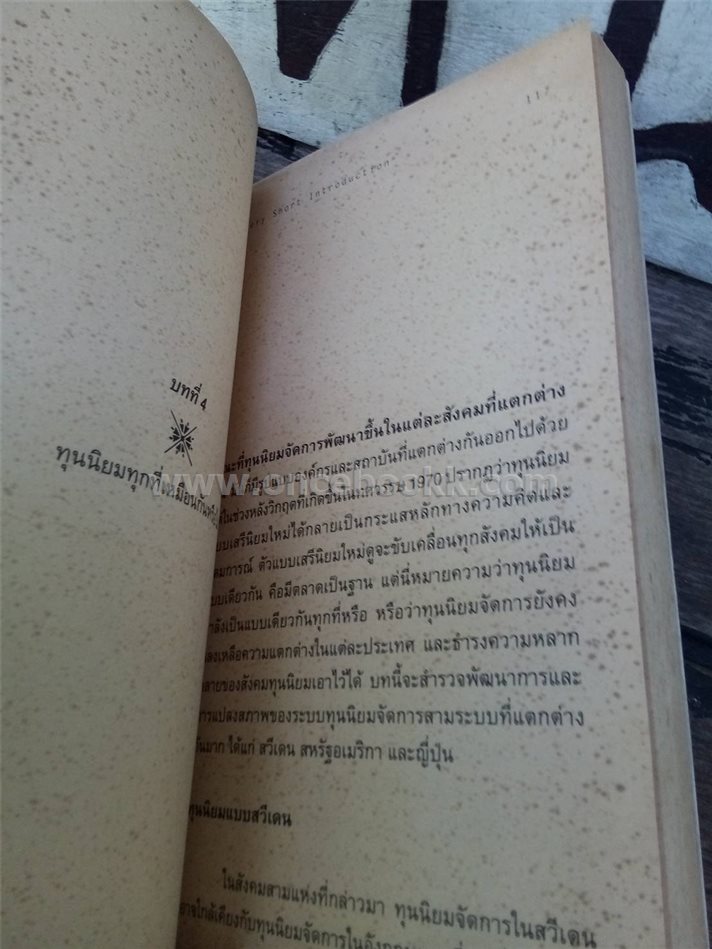 บทที่ 4
ทุนนิยมทุกที่เหมือนกันหรือ
117
Short Introduction
www.oncebookk.com
ที่ทุนนิยมจัดการพัฒนาขึ้นในแต่ละสังคมที่แตกต่าง
รูปแบบองค์กรและสถาบันที่แตกต่างกันออกไปด้วย
ในช่วงหลังวิกฤตที่เกิดขึ้นในทศวรรษ 1970 ปรากฏว่าทุนนิยม
แบบเสรีนิยมใหม่ได้กลายเป็นกระแสหลักทางความคิดและ
ตัวแบบเสรีนิยมใหม่ดูจะขับเคลื่อนทุกสังคมให้เป็น
แบบเดียวกัน คือมีตลาดเป็นฐาน แต่นี่หมายความว่าทุนนิยม
เป็นแบบเดียวกันทุกที่หรือ หรือว่าทุนนิยมจัดการยังคง
เหลือความแตกต่างในแต่ละประเทศ และธำรงความหลาก
หลายของสังคมทุนนิยมเอาไว้ได้ บทนี้จะสำรวจพัฒนาการและ
การแปลงสภาพของระบบทุนนิยมจัดการสามระบบที่แตกต่าง
กันมาก ได้แก่ สวีเดน สหรัฐอเมริกา และญี่ปุ่น
ทุนนิยมแบบสวีเดน
ในสังคมสามแห่งที่กล่าวมา ทุนนิยมจัดการในสวีเดน
อาจใกล้เคียงกับทุนนิยมจัดการใน